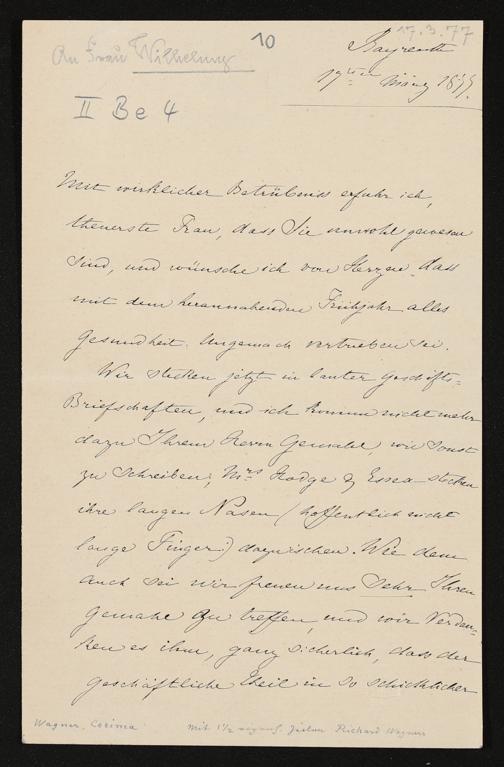 17.3.77
An Frau Wilhelmj
10
II Be 4
Bayreuth
17ten März 1877.
Mit wirklicher Betrübniss erfuhr ich,
theuerste Frau, dass Sie unwohl gewesen
sind, und wünsche ich von Herzen dass
mit dem herannahenden Frühjahr alles
Gesundheit. Ungemach vertrieben sei.
Wir stecken jetzt in lauter Geschäfts=
Briefschaften, und ich komme nicht mehr
dazu Ihrem Herrn Gemahl, wie sonst
zu schreiben; Mrs Hodge & Essex stecken
ihre langen Nasen (hoffentlich nicht
lange Finger!) dazwischen. Wie dem
auch sei wir freuen uns sehr Ihren
Gemahl zu treffen, und wir verdan=
ken es ihm, ganz sicherlich, dass der
geschäftliche Theil in so schicklicher
Wagner, Cosima
mit 1½ Zeilen Richard Wagners